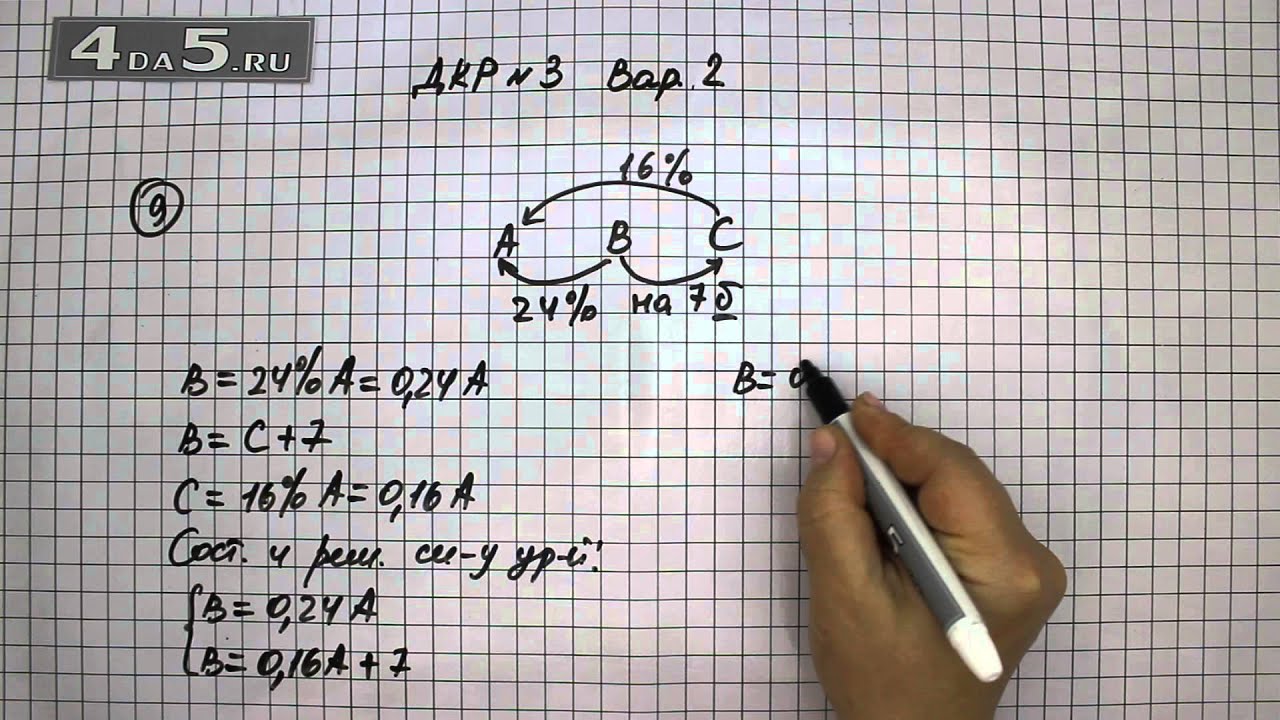 4DA5.RU
ДКР №3 Вар. 2
9
16%
A B C
24% на 7 б
B = 24% A = 0,24 A
B = 0
B = C + 7
C = 16% A = 0,16 A
Сост. и реш. си-у ур-й:
B = 0,24 A
B = 0,16A + 7